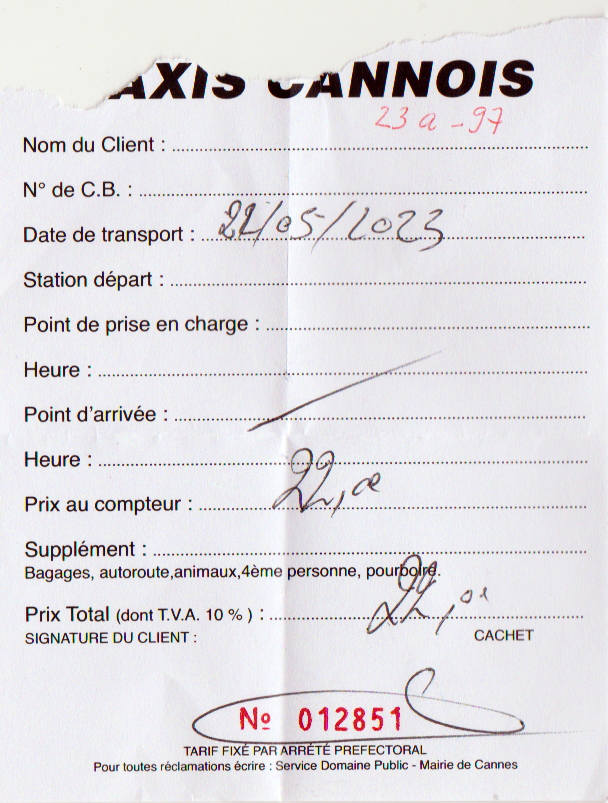 AXIS CANNOIS
23 a - 97
Nom du Client :
N° de C.B. :
Date de transport : 22/05/2023
Station départ :
Point de prise en charge :
Heure :
Point d'arrivée :
Heure :
Prix au compteur : 22,00
Supplément :
Bagages, autoroute,animaux,4ème personne, pourboire.
Prix Total (dont T.V.A. 10 % ) : 22,00
SIGNATURE DU CLIENT :
CACHET
No 012851
TARIF FIXÉ PAR ARRÉTÉ PREFECTORAL
Pour toutes réclamations écrire : Service Domaine Public - Mairie de Cannes